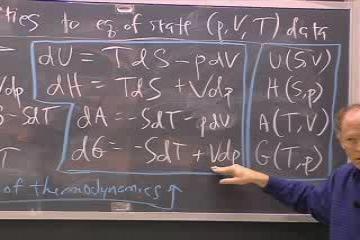 ties to eq of state (p, V, T) data
dU = TdS - pdV U(S V)
Vdp dH = TdS + Vdp H(S, p)
S - SdT dA = -SdT - pdV A(T, V)
T dG = -SdT + Vdp G(T, p)
of thermodynamics